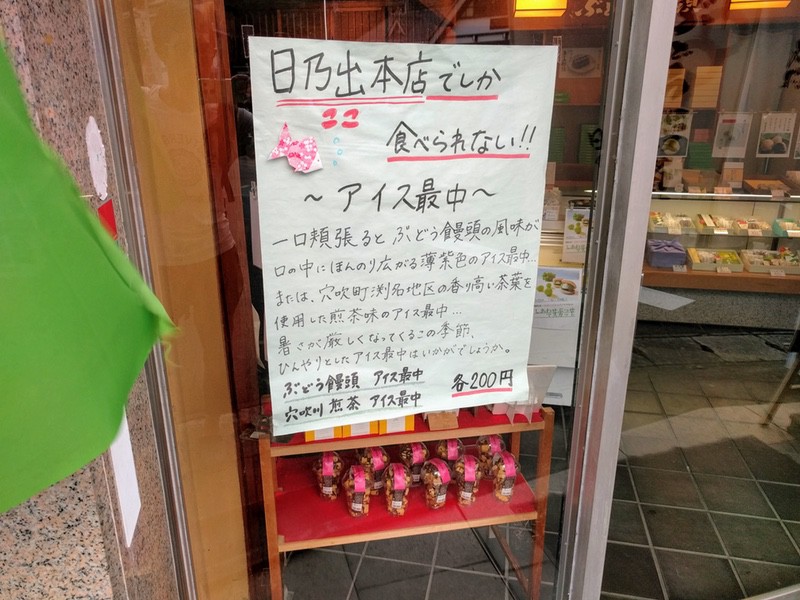 日乃出本店でしか
ここ
食べられない!!
～アイス最中～
一口頬張ると ぶどう饅頭の風味が
口の中にほんのり広がる薄紫色のアイス最中…
または、穴吹町渕名地区の香り高い茶葉を
使用した煎茶味のアイス最中…
暑さが厳しくなってくるこの季節、
ひんやりとしたアイス最中はいかがでしょうか。
ぶどう饅頭 アイス最中
各200円
穴吹川 煎茶 アイス最中